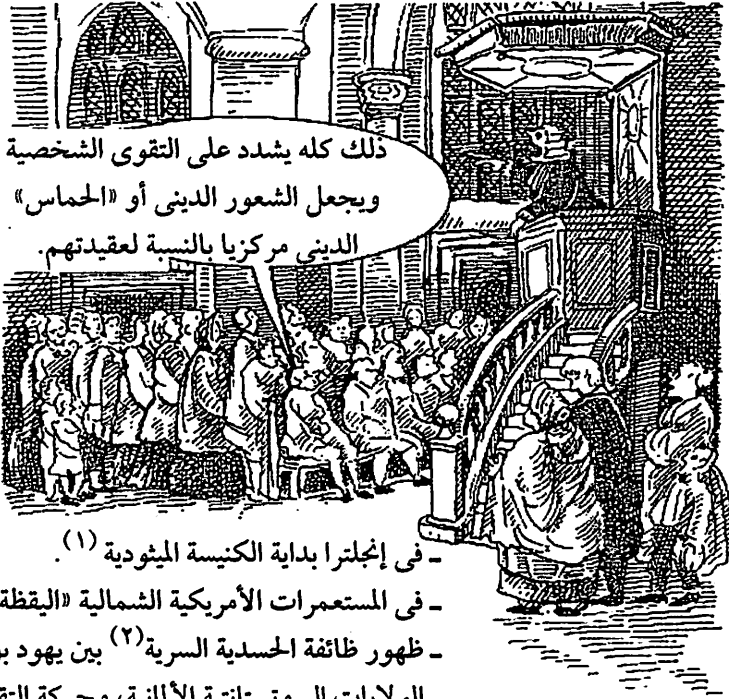 ذلك كله يشدد على التقوى الشخصية
ويجعل الشعور الدينى أو «الحماس»
الدينى مركزيا بالنسبة لعقيدتهم.
ـ فى إنجلترا بداية الكنيسة الميثودية (١).
ـ فى المستعمرات الأمريكية الشمالية «اليقظة
ـ ظهور ظائفة الحسدية السرية(٢) بين يهود